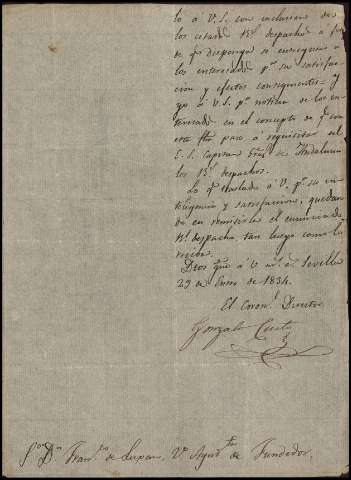 lo á V.S. con inclusion de
los citados Rs. despachos á fin
de q.e disponga se entreguen á
los interesados p.a su satisfac-
cion y efectos consiguientes y
yo á V.S. p.a noticia de los in-
teresados en el concepto de q.e con
esta fha paso á requisitar el
E.S. Capitan Gral de Andalucia
los Rs. despachos.
Lo q.e traslado á V. p.a su in-
teligencia y satisfaccion, quedan-
do en remitirle el enunciado
Rl. despacho tan luego como lo
reciba.
Dios gue á V. ms. as. Sevilla
29 de Enero de 1834.
El Coron.l Director
Gonzalo
Sor Dn Fran.co de Luxan, Vn Ayud.te de Fundador.